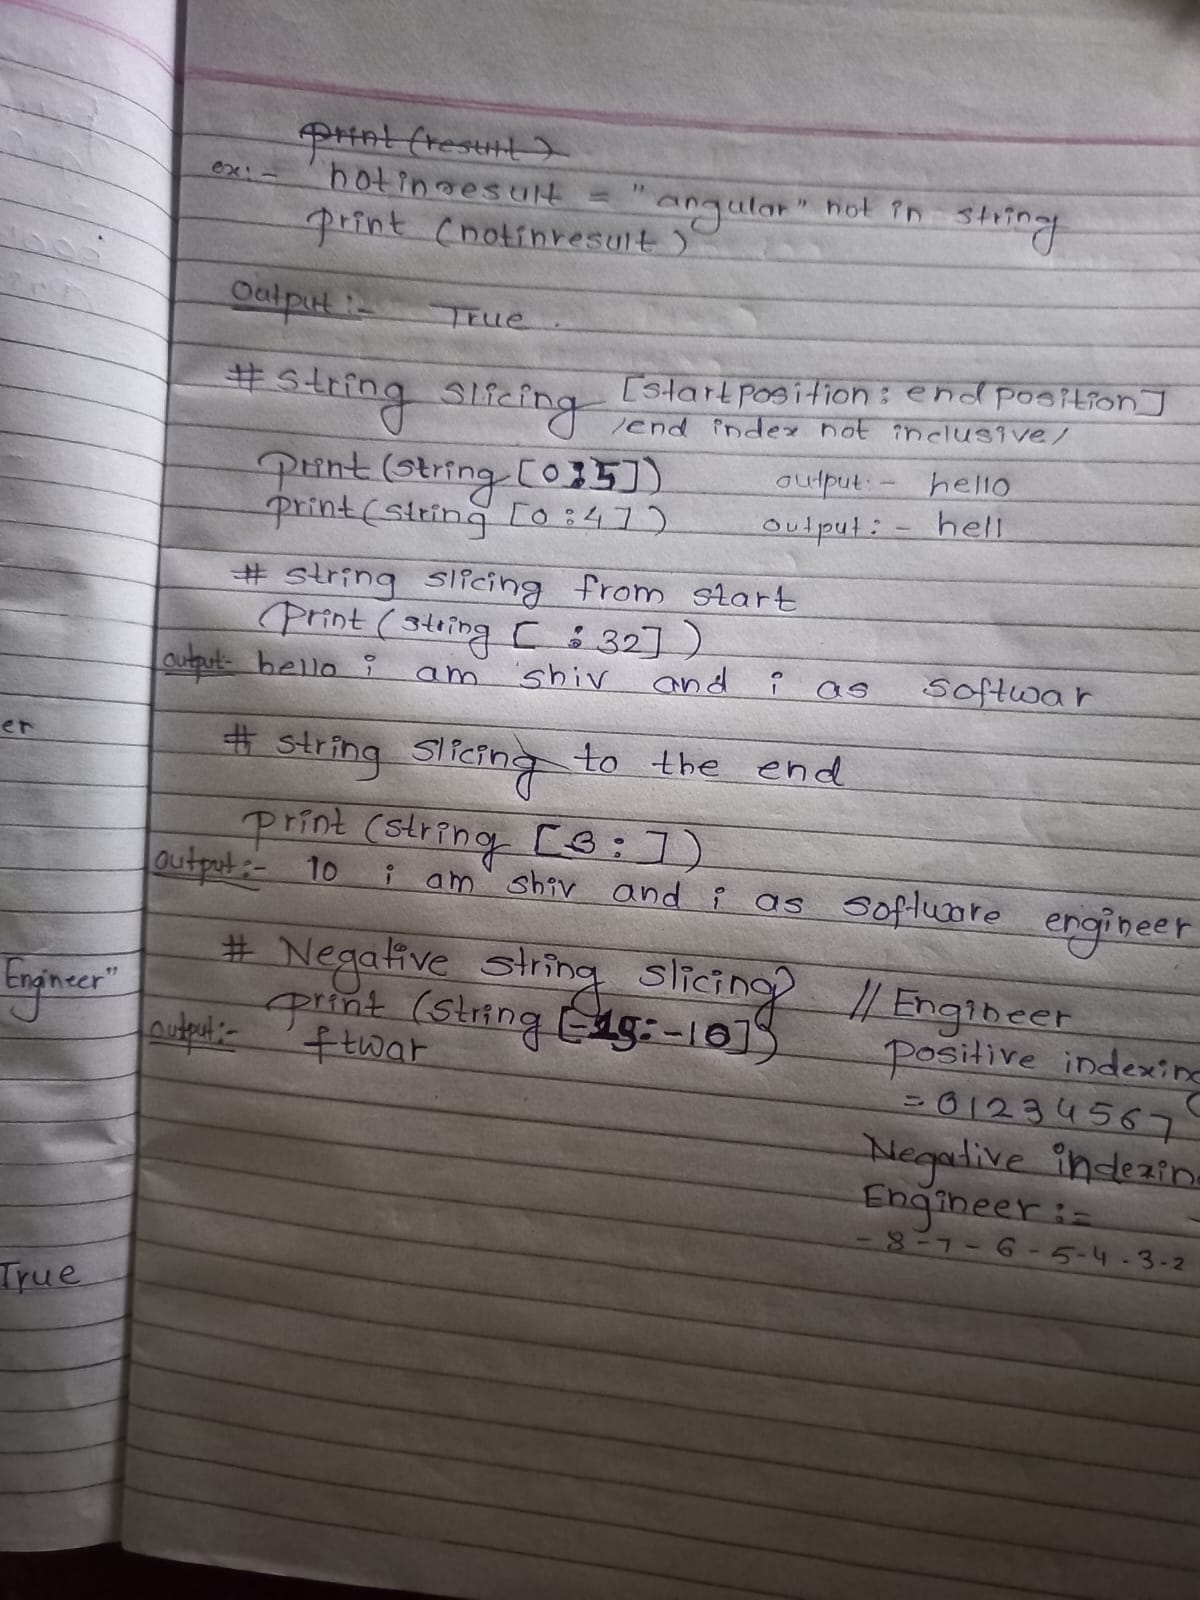 print (result)
ex:- notinresult = "angular" not in string
print (notinresult)
Output :- True .
# string slicing [startposition : end position]
/end index not inclusive/
print (string [0:5]) output:- hello
print (string [0:4]) output:- hell
# string slicing from start
print (string [ : 32])
output- hello i am shiv and i as softwar
er
# string slicing to the end
print (string [3: ])
output:- 10 i am shiv and i as software engineer
# Negative string slicing // Engineer
Engineer"
print (string [-15:-10])
output:- ftwar
positive indexing
= 01234567
Negative indexin
Engineer :=
-8-7-6-5-4-3-2
True